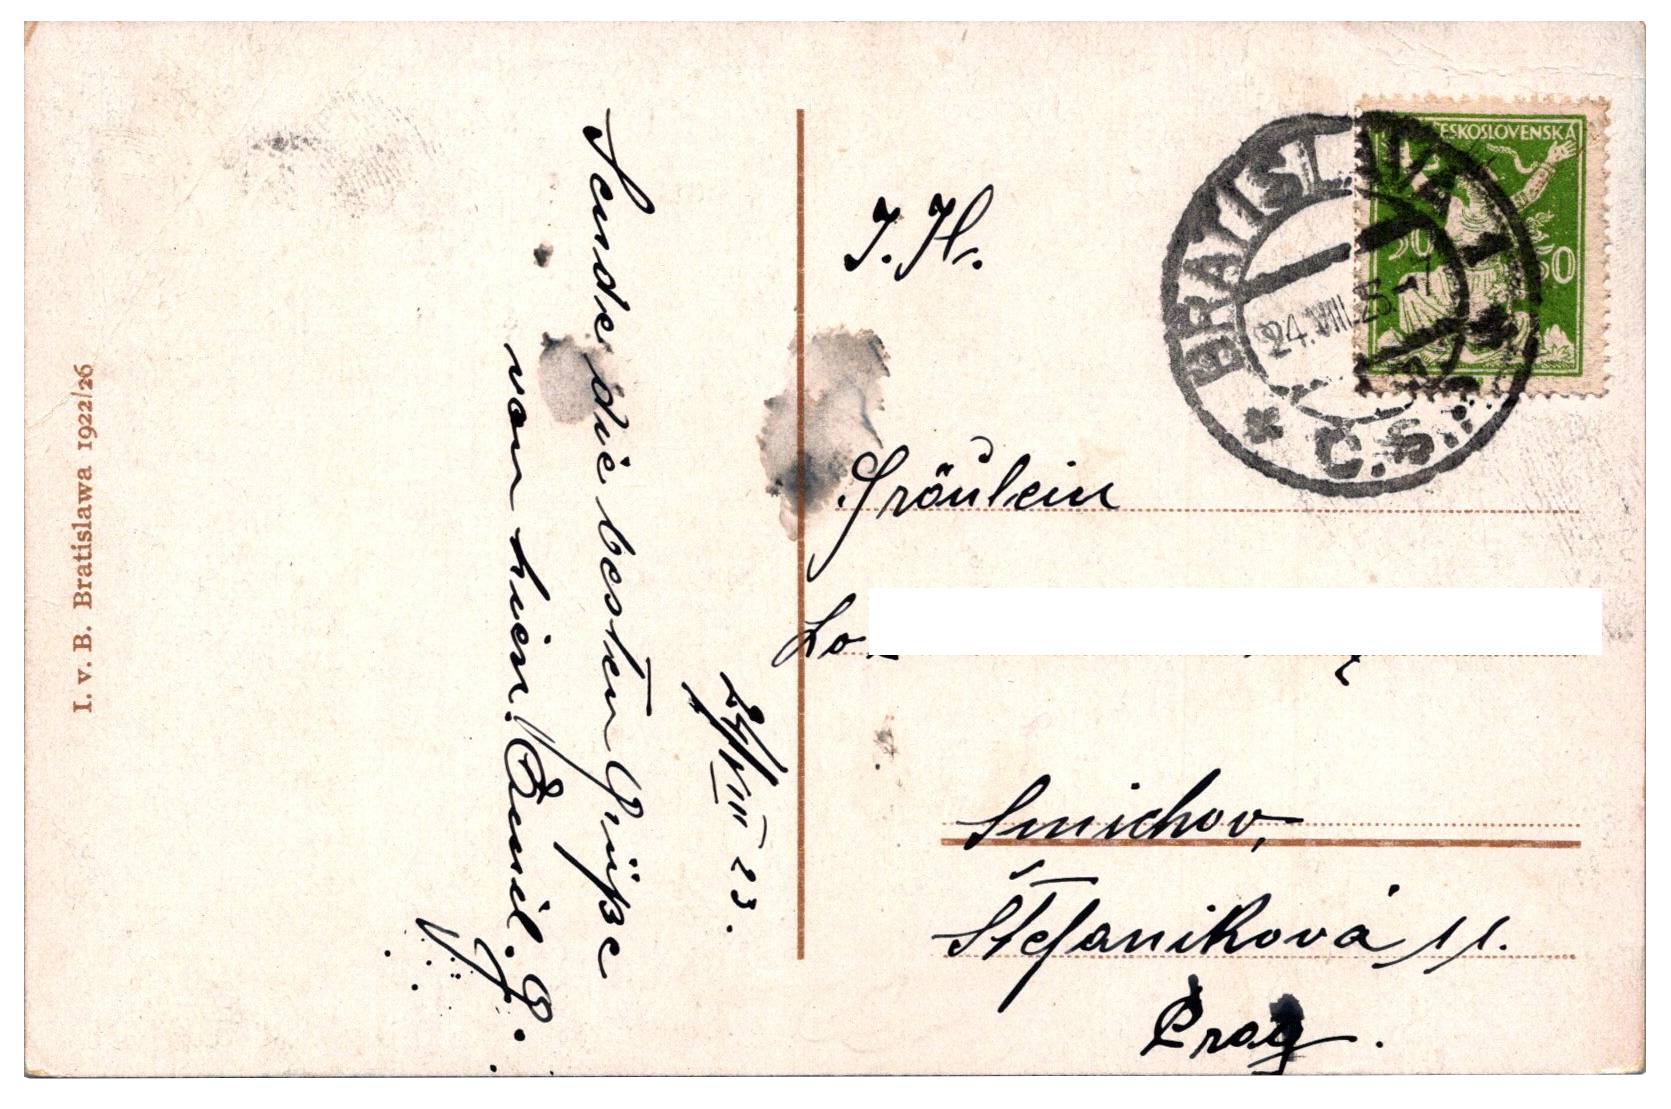 I. v. B. Bratislawa 1922/26
24/VIII 23.
Sende die besten Grüße
von hier. Emil. P.
J. H.
Fräulein
Lo
Smichov,
Štefanikova 11.
Prag.
ČESKOSLOVENSKÁ
50 50
BRATISLAVA 1
24.VIII.23-17
* Č.S.